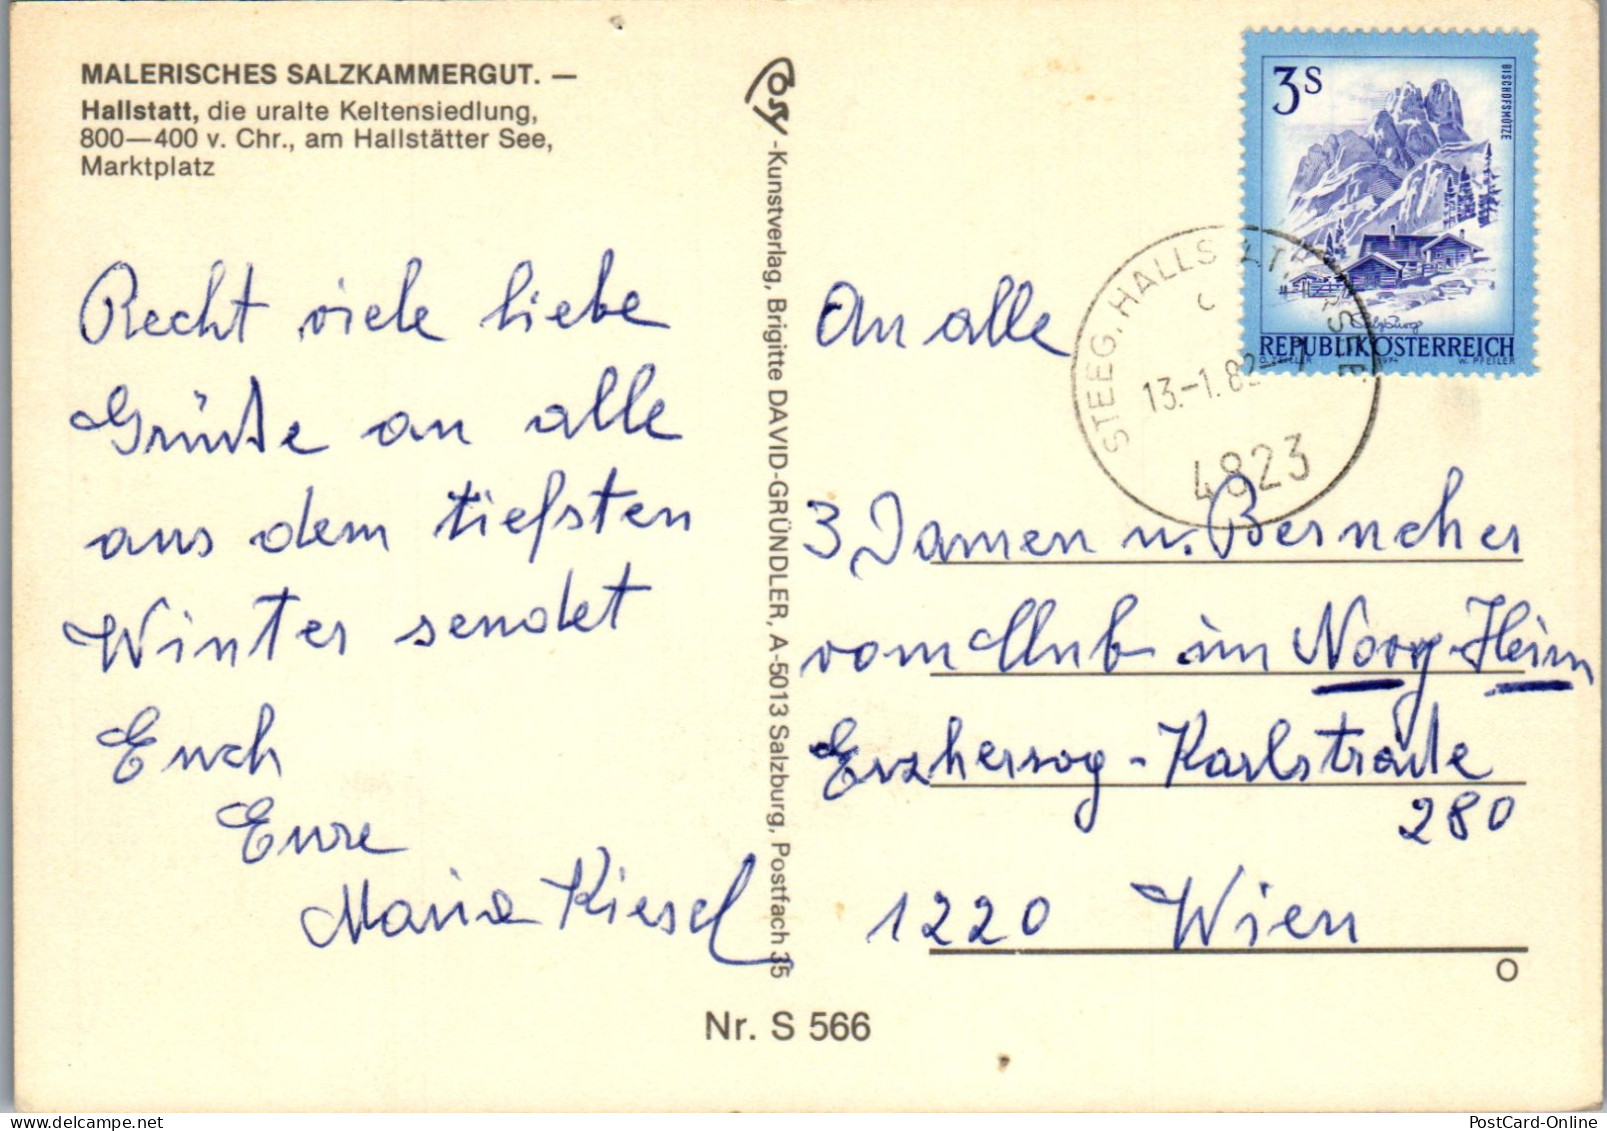 MALERISCHES SALZKAMMERGUT. —
Hallstatt, die uralte Keltensiedlung,
800—400 v. Chr., am Hallstätter See,
Marktplatz
Recht viele liebe
Grüße an alle
aus dem tiefsten
Winter sendet
Euch
Eure
Maria Kiesel
Cosy-Kunstverlag, Brigitte DAVID-GRÜNDLER, A-5013 Salzburg, Postfach 35
Nr. S 566
3S
BISCHOFSMÜTZE
Salzburg
REPUBLIK ÖSTERREICH
1974 W. PFEILER
STEEG, HALLST
13.-1.82
4823
An alle
3 Damen u. Besucher
vom Club im Nory-Heim
Erzherzog-Karlstraße
280
1220 Wien
O
PostCard-Online